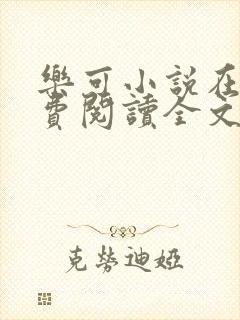 樂可小說在
費閱讀全文
克勞迪婭